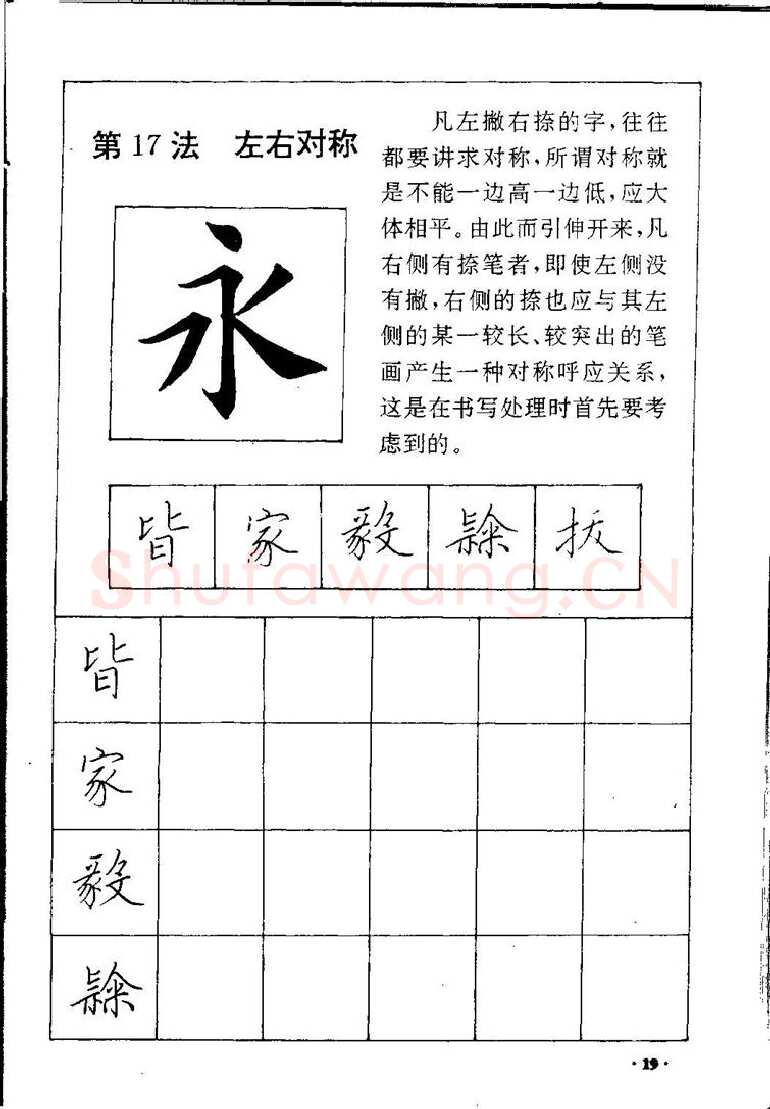 第17法 左右对称
凡左撇右捺的字，往往
都要讲求对称，所谓对称就
是不能一边高一边低，应大
体相平。由此而引伸开来，凡
右侧有捺笔者，即使左侧没
有撇，右侧的捺也应与其左
侧的某一较长、较突出的笔
画产生一种对称呼应关系，
这是在书写处理时首先要考
虑到的。
永
皆 家 毅 拔
Shufawang.CN
皆
家
毅
·19·